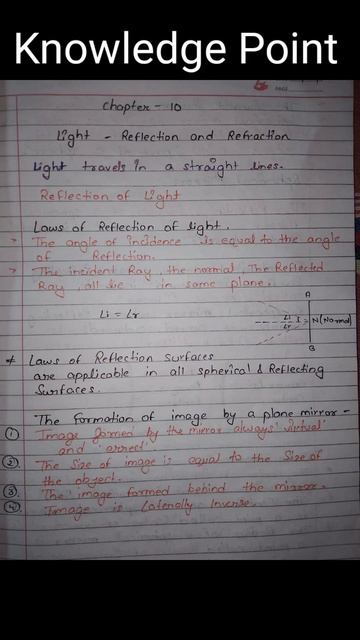 Knowledge Point
Chapter - 10
Light - Reflection and Refraction
Light travels in a straight lines.
Reflection of Light
Laws of Reflection of light.
> The angle of incidence is equal to the angle
of Reflection.
> The incident Ray, the normal, The Reflected
Ray, all lie in same plane.
∠i = ∠r
A
∠i
∠r
I
N (Normal)
B
* Laws of Reflection Surfaces
are applicable in all spherical & Reflecting
Surfaces.
The formation of image by a plane mirror -
① Image formed by the mirror always 'virtual'
and 'errect'.
② The Size of image is equal to the Size of
the object.
③ The image formed behind the mirror.
④ Image is Laterally Inverse.